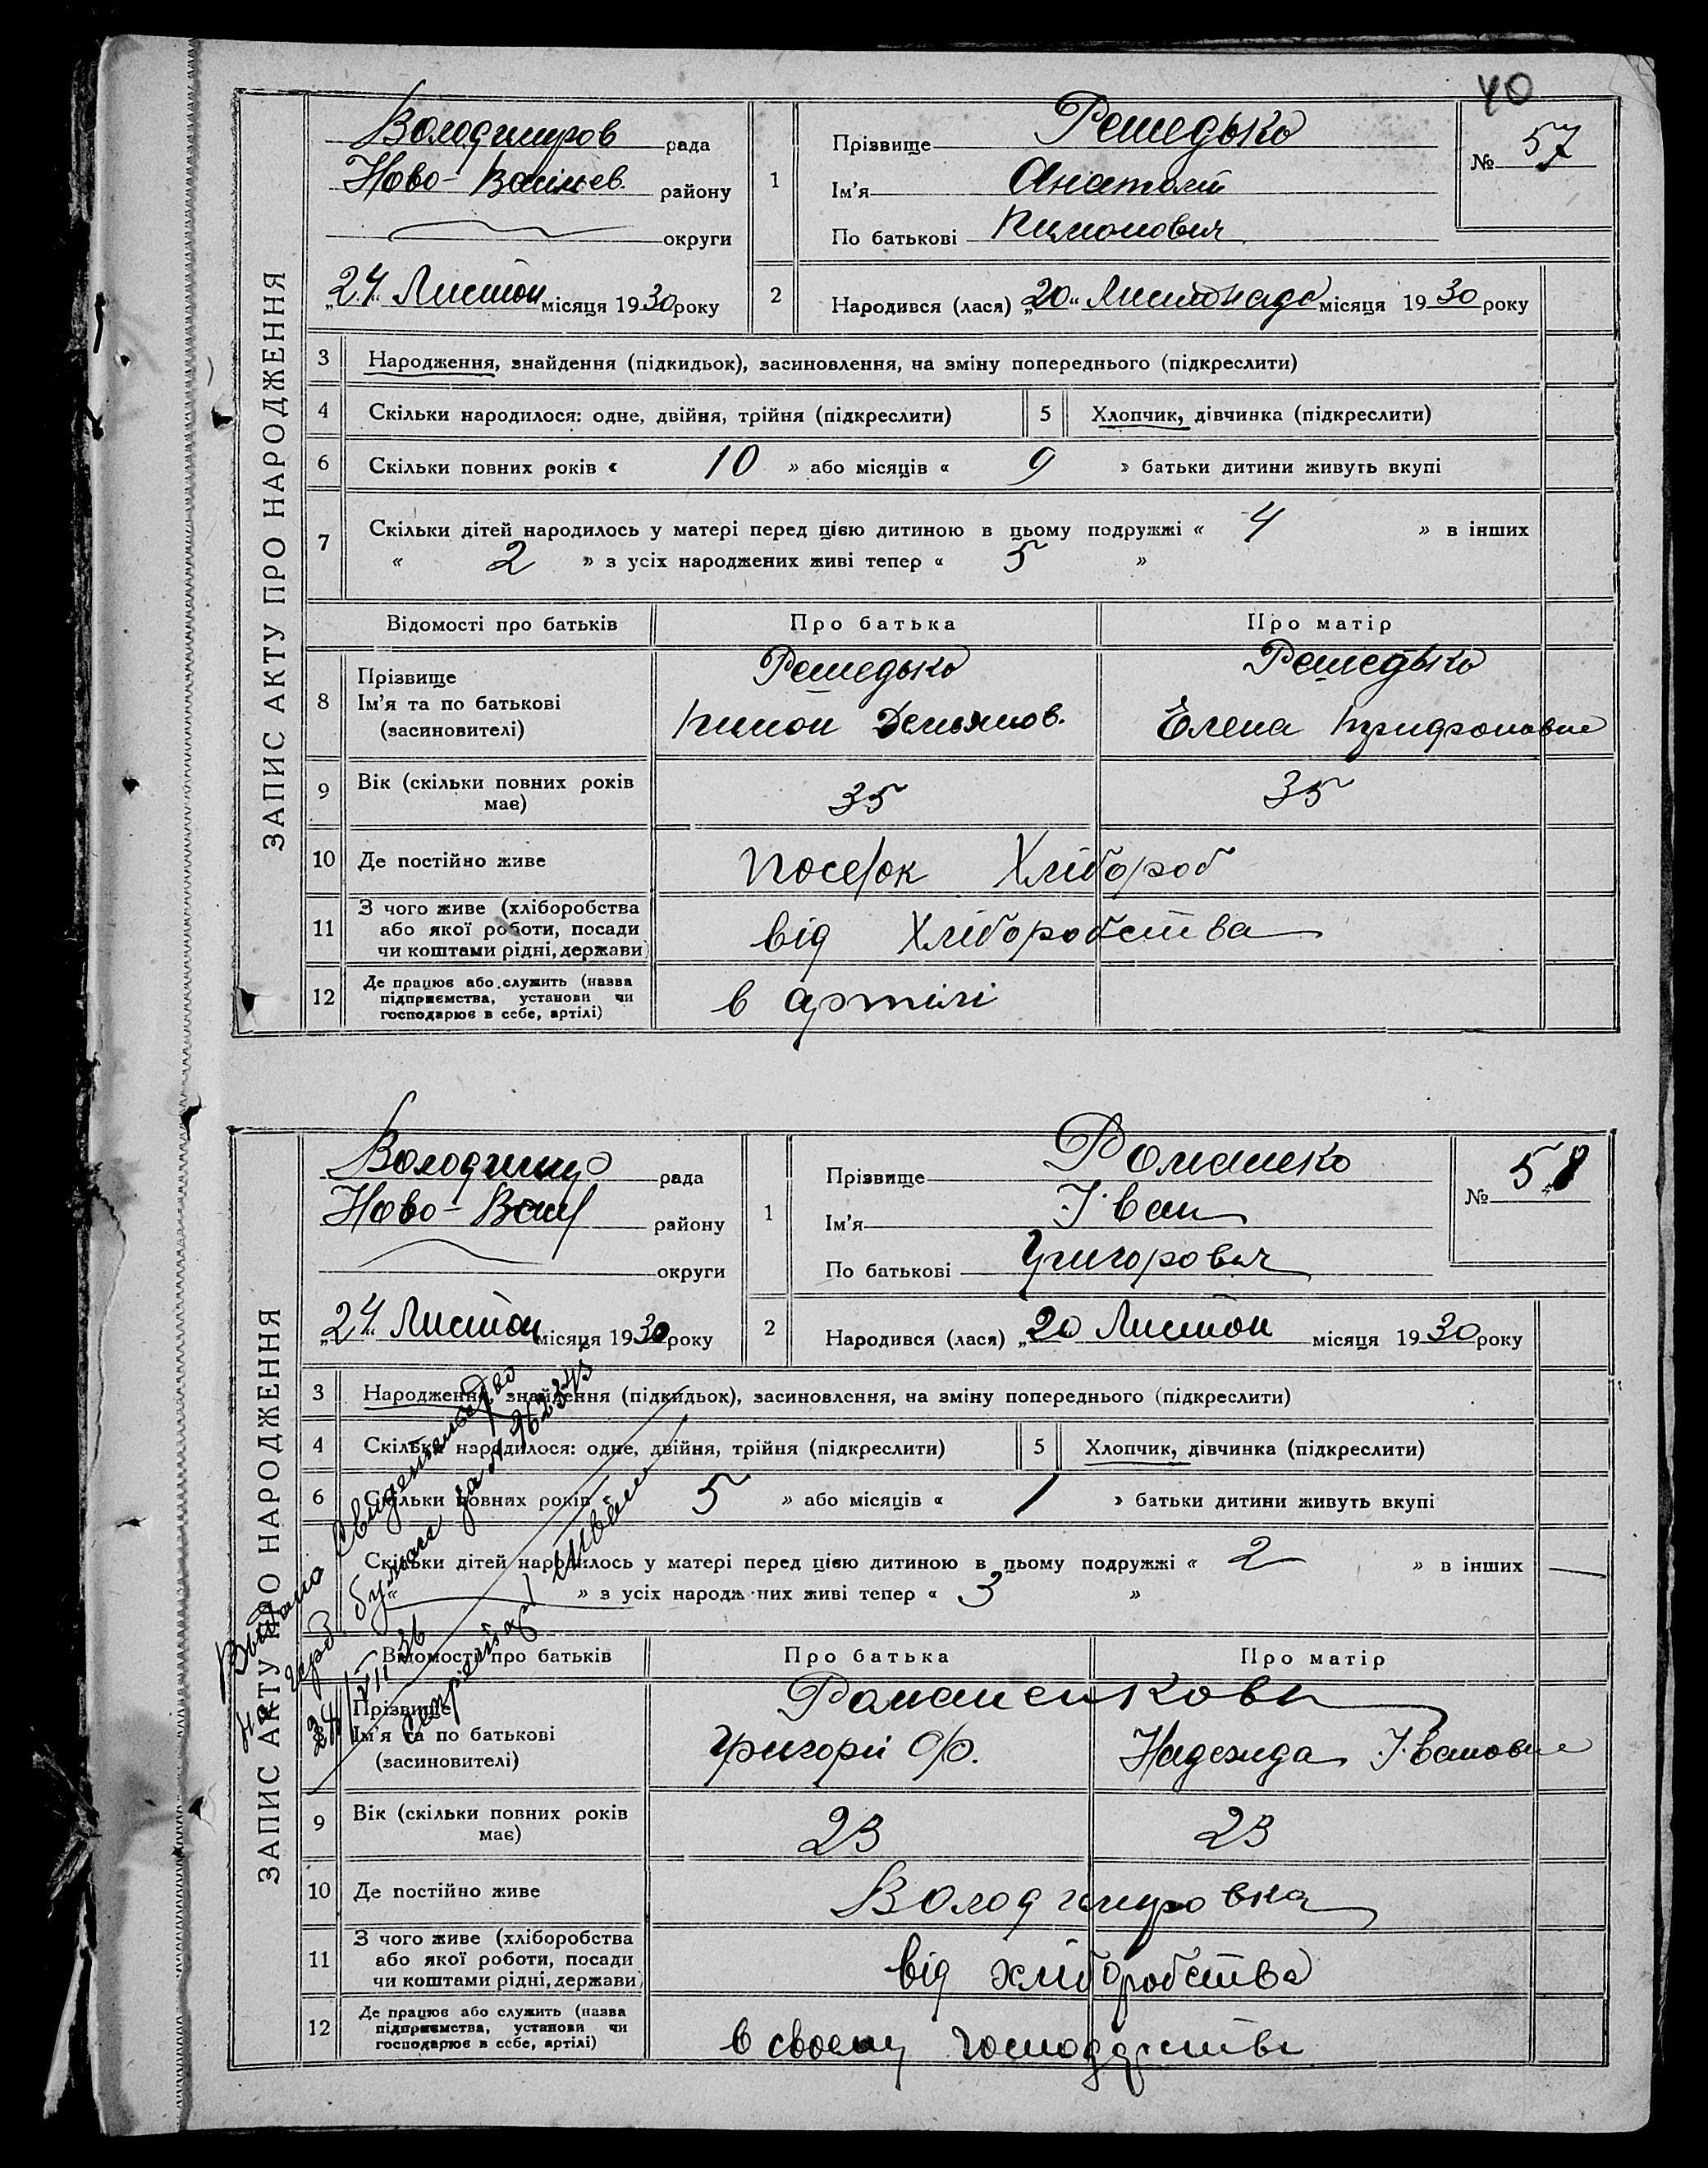 40
ЗАПИС АКТУ ПРО НАРОДЖЕННЯ
Володимиров рада
Ново-Васильев. району
округи
„24“ Листоп місяця 1930 року
1
Прізвище Решедько
Ім'я Анатолій
По батькові Пимонович
№ 57
2 Народився (лася) „20“ Листопада місяця 1930 року
3 Народження, знайдення (підкидьок), засиновлення, на зміну попереднього (підкреслити)
4 Скільки народилося: одне, двійня, трійня (підкреслити) 5 Хлопчик, дівчинка (підкреслити)
6 Скільки повних років « 10 » або місяців « 9 » батьки дитини живуть вкупі
7 Скільки дітей народилось у матері перед цією дитиною в цьому подружжі « 4 » в інших
« 2 » з усіх народжених живі тепер « 5 »
Відомості про батьків Про батька Про матір
8 Прізвище Решедько Решедько
Ім'я та по батькові Пимон Демьянов. Елена Трифоновна
(засиновителі)
9 Вік (скільки повних років має) 35 35
10 Де постійно живе Посёлок Хлібороб
11 З чого живе (хліборобства
або якої роботи, посади від Хліборобства
чи коштами рідні, держави)
12 Де працює або служить (назва
підприємства, установи чи в артілі
господарює в себе, артілі)
ЗАПИС АКТУ ПРО НАРОДЖЕННЯ
Володимир рада
Ново-Васил району
округи
„24“ Листоп місяця 1930 року
1
Прізвище Ромашко
Ім'я Іван
По батькові Григорович
№ 58
2 Народився (лася) „20 Листоп місяця 1930 року
3 Народження, знайдення (підкидьок), засиновлення, на зміну попереднього (підкреслити)
4 Скільки народилося: одне, двійня, трійня (підкреслити) 5 Хлопчик, дівчинка (підкреслити)
6 Скільки повних років 5 » або місяців « / » батьки дитини живуть вкупі
Скільки дітей народилось у матері перед цією дитиною в цьому подружжі « 2 » в інших —
« » з усіх народжених живі тепер « 3 »
Выдано Свидетельство
на герб. бумаге за №
24/VIII 36
Секретарь
Відомості про батьків Про батька Про матір
Прізвище Романенкови
Ім'я та по батькові Григорій Ф. Надежда Івановна
(засиновителі)
9 Вік (скільки повних років має) 23 23
10 Де постійно живе Володимировка
11 З чого живе (хліборобства
або якої роботи, посади від хліборобства
чи коштами рідні, держави)
12 Де працює або служить (назва
підприємства, установи чи в своему господарстві
господарює в себе, артілі)